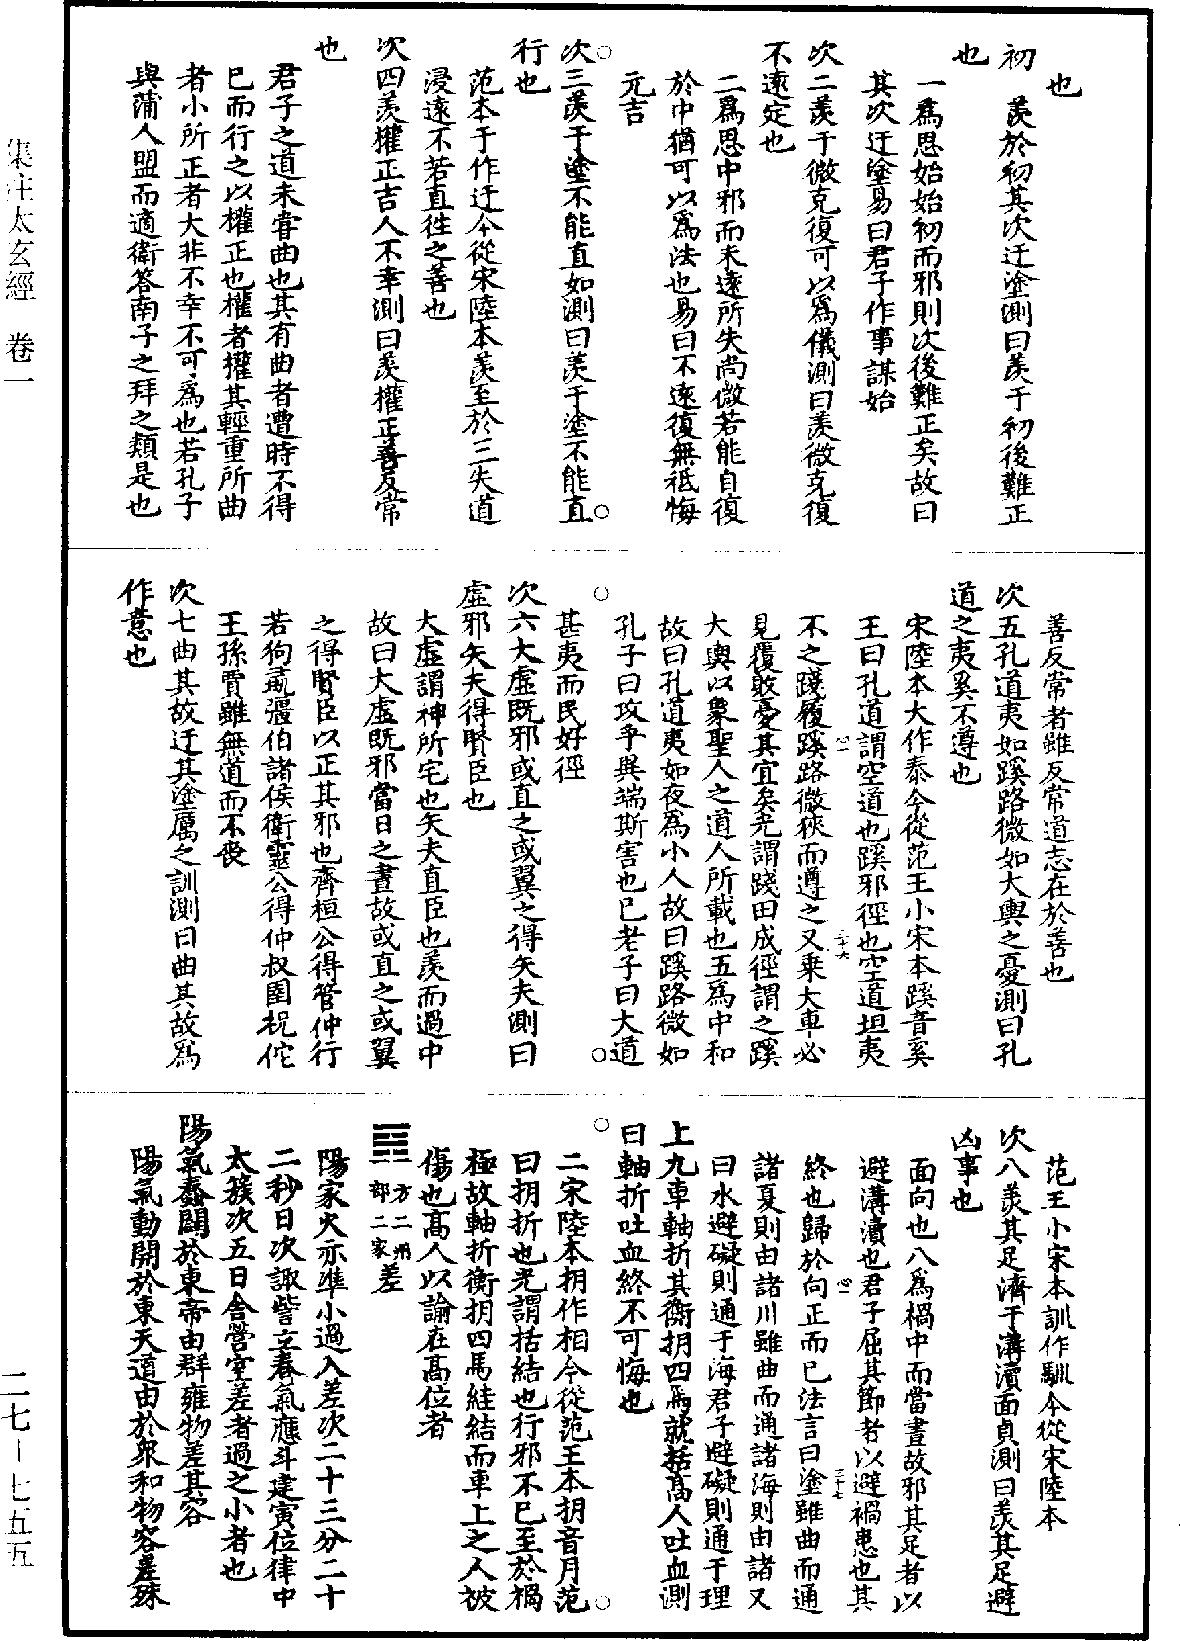 集注太玄經　卷一
二七－七五五
也
初　羨於初其次迂塗測曰羨于初後難正
也
一爲思始始初而邪則次後難正矣故曰
其次迂塗易曰君子作事謀始
次二羨于微克復可以爲儀測曰羨微克復
不遠定也
二爲思中邪而未遠所失尚微若能自復
於中猶可以爲法也易曰不遠復無祗悔
元吉
○次三羨于塗不能直如測曰羨于塗不能直○
行也
范本于作迂今從宋陸本羨至於三失道
浸遠不若直徃之善也
次四羨權正吉人不幸測曰羨權正善反常
也
君子之道未甞曲也其有曲者遭時不得
已而行之以權正也權者權其輕重所曲
者小所正者大非不幸不可爲也若孔子
與蒲人盟而適衛答南子之拜之類是也
善反常者雖反常道志在於善也
次五孔道夷如蹊路微如大輿之憂測曰孔
道之夷奚不遵也
宋陸本大作泰今從范王小宋本蹊音奚
王曰孔道謂空道也蹊邪徑也空道坦夷
不之踐履蹊路微狹而遵之又乗大車必
見覆敗憂其宜矣光謂踐田成徑謂之蹊
大輿以象聖人之道人所載也五爲中和
故曰孔道夷如夜爲小人故曰蹊路微如
孔子曰攻乎異端斯害也已老子曰大道
○甚夷而民好徑○
次六大虛既邪或直之或翼之得矢夫測曰
虛邪矢夫得賢臣也
大虛謂神所宅也矢夫直臣也羨而過中
故曰大虛既邪當日之晝故或直之或翼
之得賢臣以正其邪也齊桓公得管仲行
若狗彘彊伯諸侯衛靈公得仲叔圉祝佗
王孫賈雖無道而不喪
次七曲其故迂其塗厲之訓測曰曲其故爲
作意也
范王小宋本訓作馴今從宋陸本
次八羨其足濟于溝瀆面貞測曰羨其足避
凶事也
面向也八爲禍中而當晝故邪其足者以
避溝瀆也君子屈其節者以避禍患也其
終也歸於向正而已法言曰塗雖曲而通
諸夏則由諸川雖曲而通諸海則由諸又
曰水避礙則通于海君子避礙則通于理
上九車軸折其衡抈四馬就括髙人吐血測
曰軸折吐血終不可悔也
○二宋陸本抈作相今從范王本抈音月范○
曰抈折也光謂括結也行邪不已至於禍
極故軸折衡抈四馬絓結而車上之人被
傷也髙人以諭在髙位者
一方二州
二部二家差
陽家火亦準小過入差次二十三分二十
二秒日次諏訾立春氣應斗建寅位律中
太簇次五日舎營室差者過之小者也
陽氣蠢闢於東帝由群雍物差其容
陽氣動開於東天道由於衆和物容差殊